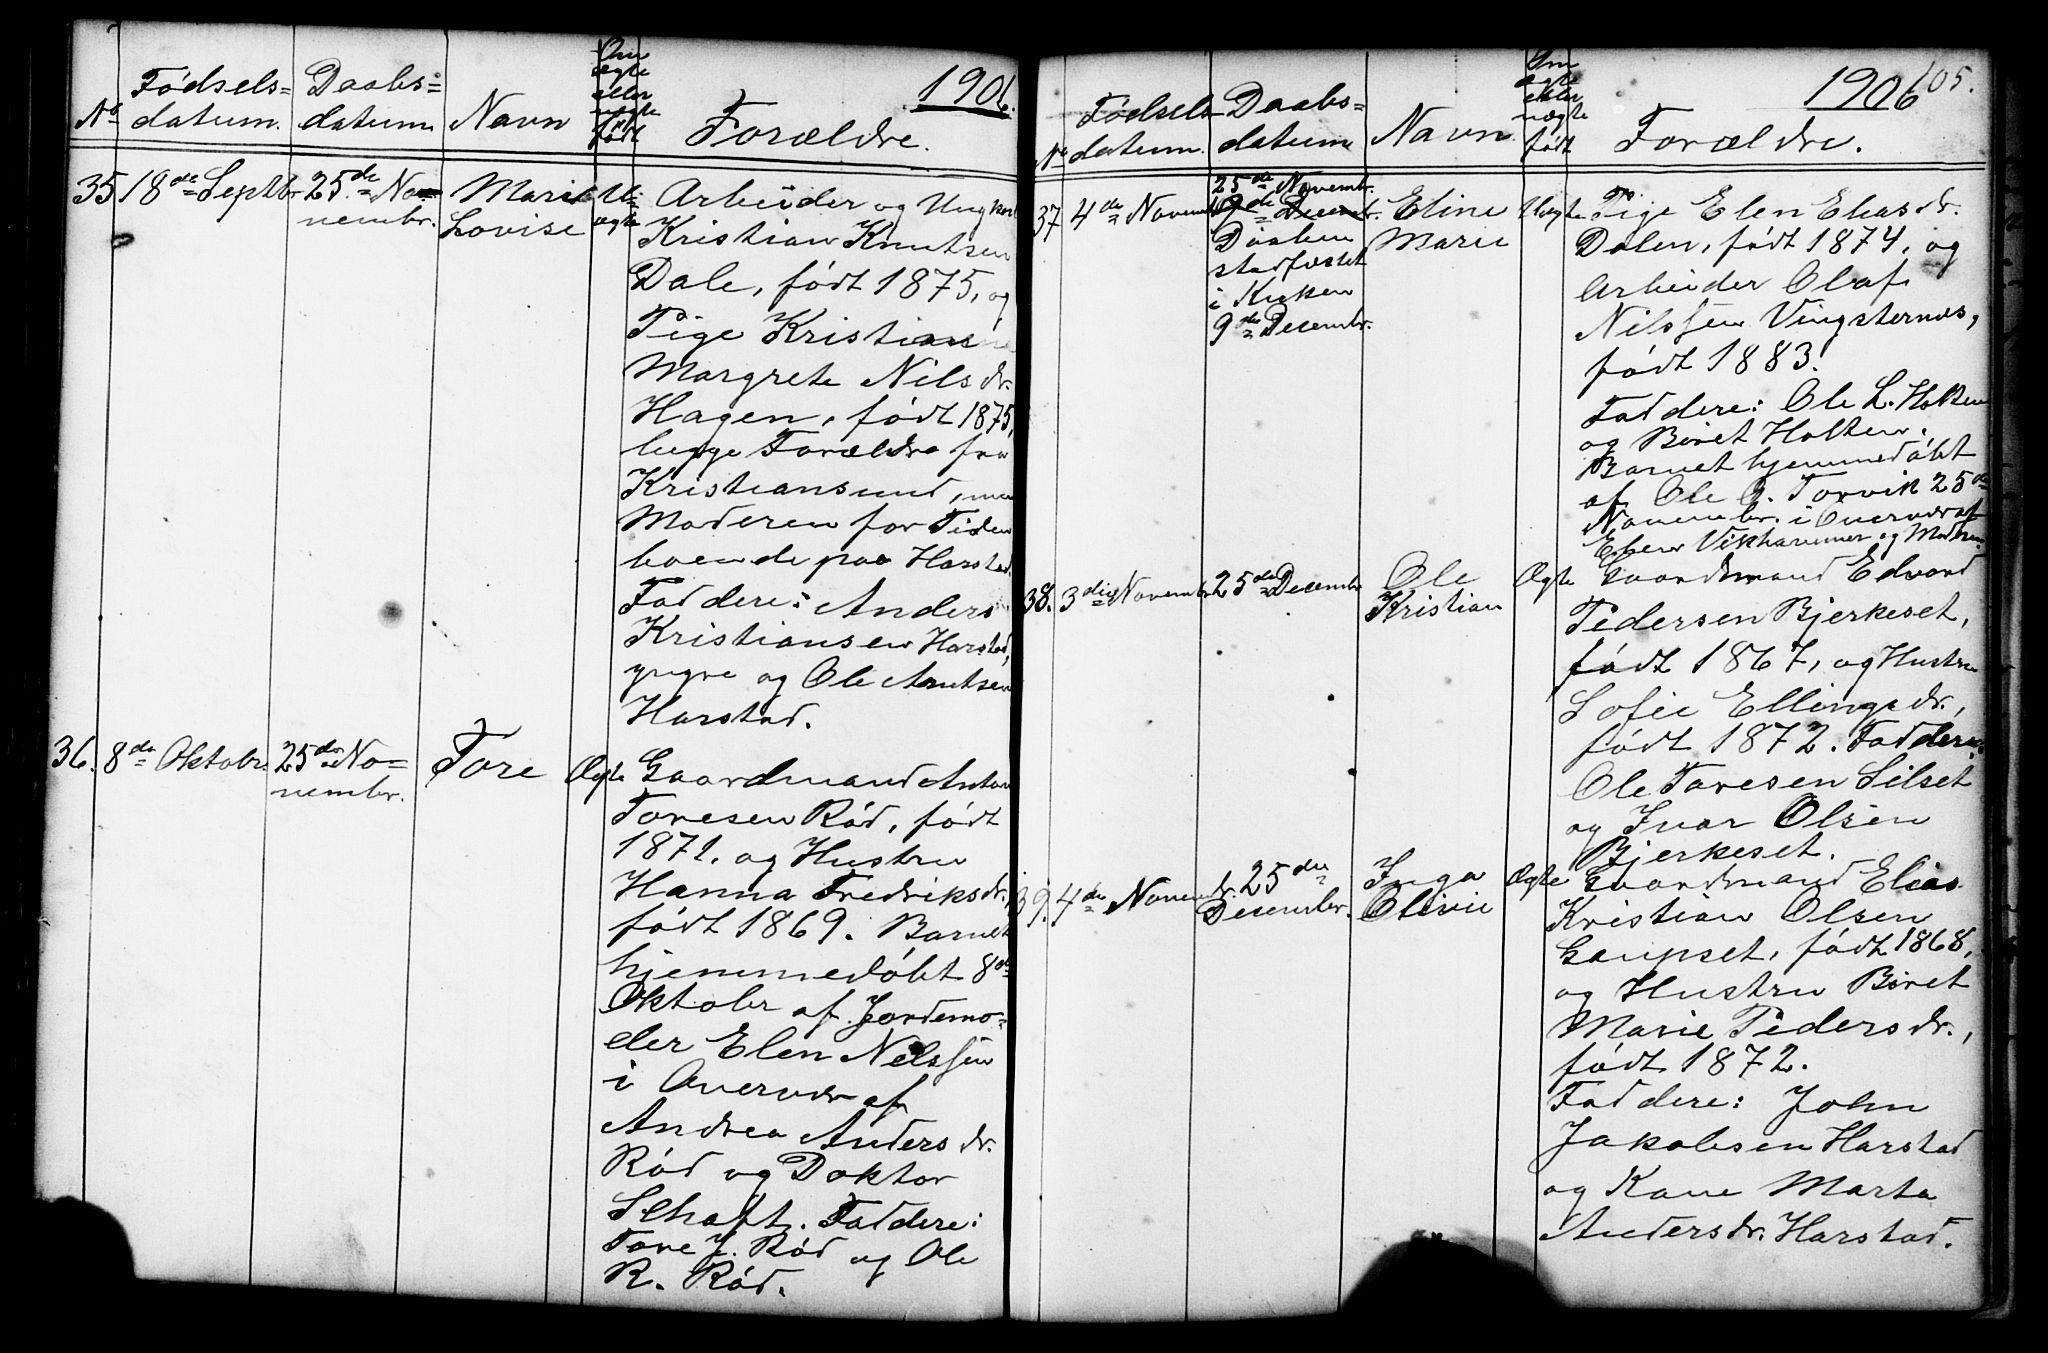 1906.
No
Fødsels=
datum.
Daabs=
datum
Navn
Om
ægte
eller
uægte
født
Forældre.
35
18de Septbr
25de No=
vembr.
Marie
Lovise
U=
ægte
Arbeider og Ungkarl
Kristian Knutsen
Dale, født 1875, og
Pige Kristianne
Margrete Nilsdr.
Hagen, født 1875,
begge Forældre fra
Kristiansund, men
Moderen for Tiden
boende paa Harstad.
Faddere: Anders
Kristiansen Harstad,
yngre og Ole Arntsen
Harstad.
36.
8de Oktobr.
25de No=
vembr.
Tore
Ægte
Gaardmand Anton
Toresen Rød, født
1871. og Hustru
Hanna Fredriksdr.,
født 1869. Barnet
hjemmedøbt 8de
Oktober af Jordemo=
der Elen Nilssen
i Overvær af
Andrea Andersdr.
Rød og Doktor
Schaft. Faddere:
Tore J. Rød og Ole
R. Rød.
1906
105.
No
Fødsels
datum.
Daabs=
datum
Navn
Om
ægte
eller
uægte
født
Forældre.
37
4de Novembr.
25de Novembr.
9de Decembr.
Daaben
stadfæstet
i Kirken
9de Decembr.
Eline
Marie
Uægte
Pige Elen Eliasdr.
Dalen, født 1874. og
Arbeider Olaf
Nilssen Vingsternes,
født 1883.
Faddere: Ole L. Holten
og Beret Holten.
Barnet hjemmedøbt
af Ole G. Torvik 25de
Novembr. i Overvær af
Elen Vikhammer og Moderen.
38.
3die Novembr
25de Decembr
Ole
Kristian
Ægte
Gaardmand Edvard
Pedersen Bjerkeset,
født 1867, og Hustru
Sofie Ellingsdr.,
født 1872. Faddere:
Ole Toresen Silset
og Ivar Olsen
Bjerkeset.
39.
4de Novembr.
25de
Decembr.
Inga
Olivie
Ægte
Gaardmand Elias
Kristian Olsen
Gaupset, født 1868,
og Hustru Beret
Marie Pedersdr.,
født 1872.
Faddere: John
Jakobsen Harstad
og Kone Marta
Andersdr. Harstad.